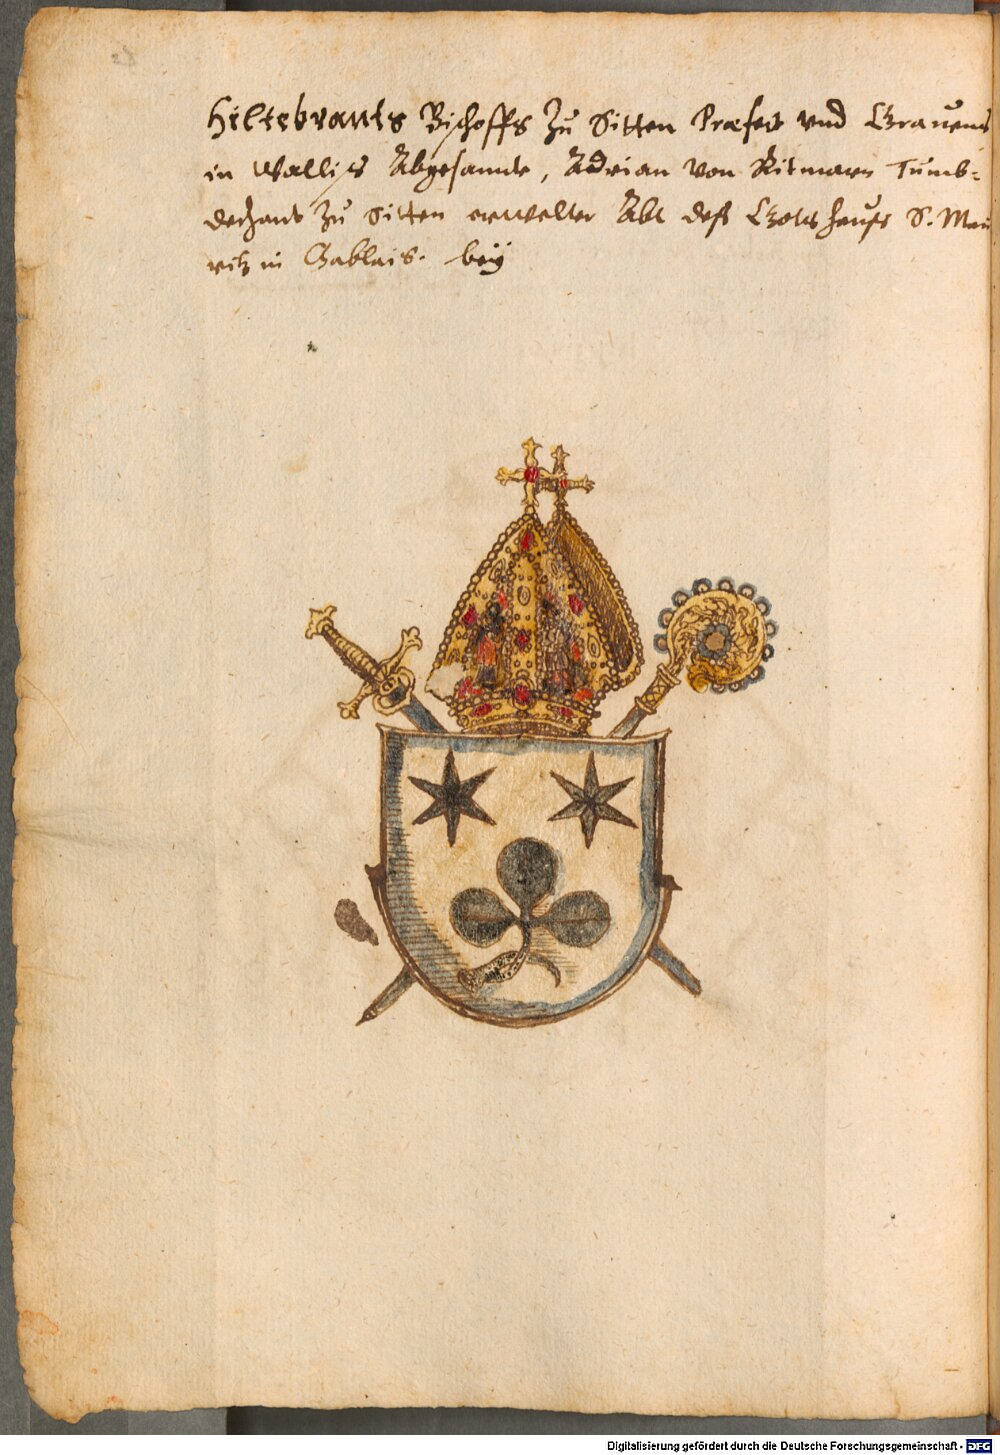 Hiltebrants Bischoffs Zu Sitten Præfect vnd Grauens
in Wallis Abgesante, Adrian von Ritmaten Tumb-
dechant zu Sitten erwelter Abt deß Gotshauß S. Mau
ritz in Cablais. beÿ
Digitalisierung gefördert durch die Deutsche Forschungsgemeinschaft - DFG